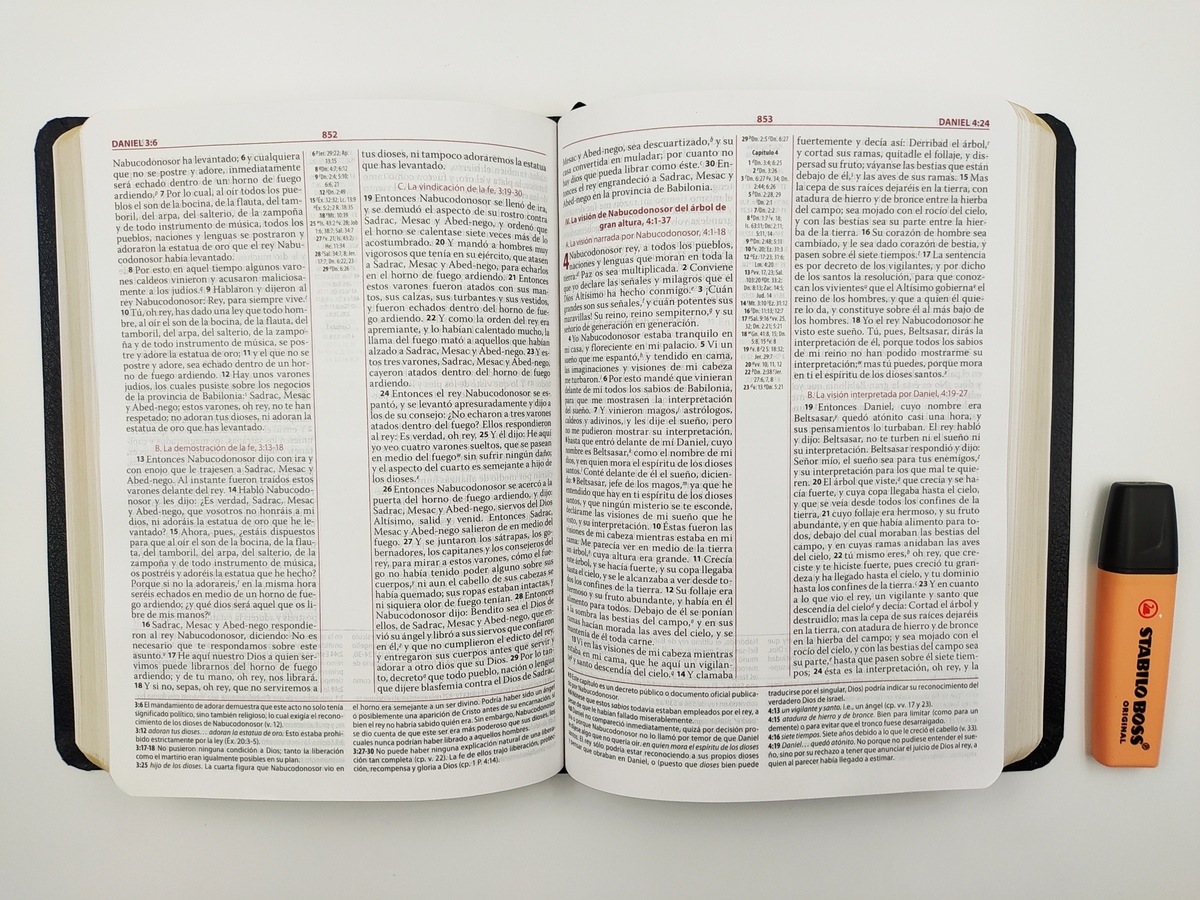 DANIEL 3:6
852
Nabucodonosor ha levantado; 6 y cualquiera
que no se postre y adore, inmediatamente
será echado dentro de un horno de fuego
ardiendo. 7 Por lo cual, al oír todos los pue-
blos el son de la bocina, de la flauta, del tam-
boril, del arpa, del salterio, de la zampoña
y de todo instrumento de música, todos los
pueblos, naciones y lenguas se postraron y
adoraron la estatua de oro que el rey Nabu-
codonosor había levantado.
8 Por esto en aquel tiempo algunos varo-
nes caldeos vinieron y acusaron maliciosa-
mente a los judíos. 9 Hablaron y dijeron al
rey Nabucodonosor: Rey, para siempre vive.
10 Tú, oh rey, has dado una ley que todo hom-
bre, al oír el son de la bocina, de la flauta, del
tamboril, del arpa, del salterio, de la zampo-
ña y de todo instrumento de música, se pos-
tre y adore la estatua de oro; 11 y el que no se
postre y adore, sea echado dentro de un hor-
no de fuego ardiendo. 12 Hay unos varones
judíos, los cuales pusiste sobre los negocios
de la provincia de Babilonia: Sadrac, Mesac
y Abed-nego; estos varones, oh rey, no te han
respetado; no adoran tus dioses, ni adoran la
estatua de oro que has levantado.
B. La demostración de la fe, 3:13-18
13 Entonces Nabucodonosor dijo con ira y
con enojo que le trajesen a Sadrac, Mesac y
Abed-nego. Al instante fueron traídos estos
varones delante del rey. 14 Habló Nabucodo-
nosor y les dijo: ¿Es verdad, Sadrac, Mesac
y Abed-nego, que vosotros no honráis a mi
dios, ni adoráis la estatua de oro que he le-
vantado? 15 Ahora, pues, ¿estáis dispuestos
para que al oír el son de la bocina, de la flau-
ta, del tamboril, del arpa, del salterio, de la
zampoña y de todo instrumento de música,
os postréis y adoréis la estatua que he hecho?
Porque si no la adorareis, en la misma hora
seréis echados en medio de un horno de fue-
go ardiendo; ¿y qué dios será aquel que os li-
bre de mis manos?
16 Sadrac, Mesac y Abed-nego respondie-
ron al rey Nabucodonosor, diciendo: No es
necesario que te respondamos sobre este
asunto. 17 He aquí nuestro Dios a quien ser-
vimos puede librarnos del horno de fuego
ardiendo; y de tu mano, oh rey, nos librará.
18 Y si no, sepas, oh rey, que no serviremos a
tus dioses, ni tampoco adoraremos la estatua
que has levantado.
C. La vindicación de la fe, 3:19-30
19 Entonces Nabucodonosor se llenó de ira,
y se demudó el aspecto de su rostro contra
Sadrac, Mesac y Abed-nego, y ordenó que
el horno se calentase siete veces más de lo
acostumbrado. 20 Y mandó a hombres muy
vigorosos que tenía en su ejército, que atasen
a Sadrac, Mesac y Abed-nego, para echarlos
en el horno de fuego ardiendo. 21 Entonces
estos varones fueron atados con sus man-
tos, sus calzas, sus turbantes y sus vestidos,
y fueron echados dentro del horno de fue-
go ardiendo. 22 Y como la orden del rey era
apremiante, y lo habían calentado mucho, la
llama del fuego mató a aquellos que habían
alzado a Sadrac, Mesac y Abed-nego. 23 Y es-
tos tres varones, Sadrac, Mesac y Abed-nego,
cayeron atados dentro del horno de fuego
ardiendo.
24 Entonces el rey Nabucodonosor se es-
pantó, y se levantó apresuradamente y dijo a
los de su consejo: ¿No echaron a tres varones
atados dentro del fuego? Ellos respondieron
al rey: Es verdad, oh rey. 25 Y él dijo: He aquí
yo veo cuatro varones sueltos, que se pasean
en medio del fuego sin sufrir ningún daño;
y el aspecto del cuarto es semejante a hijo de
los dioses.
26 Entonces Nabucodonosor se acercó a la
puerta del horno de fuego ardiendo, y dijo:
Sadrac, Mesac y Abed-nego, siervos del Dios
Altísimo, salid y venid. Entonces Sadrac,
Mesac y Abed-nego salieron de en medio del
fuego. 27 Y se juntaron los sátrapas, los go-
bernadores, los capitanes y los consejeros del
rey, para mirar a estos varones, cómo el fue-
go no había tenido poder alguno sobre sus
cuerpos, ni aun el cabello de sus cabezas se
había quemado; sus ropas estaban intactas, y
ni siquiera olor de fuego tenían. 28 Entonces
Nabucodonosor dijo: Bendito sea el Dios de
ellos, de Sadrac, Mesac y Abed-nego, que en-
vió su ángel y libró a sus siervos que confiaron
en él, y que no cumplieron el edicto del rey,
y entregaron sus cuerpos antes que servir y
adorar a otro dios que su Dios. 29 Por lo tan-
to, decreto que todo pueblo, nación o lengua
que dijere blasfemia contra el Dios de Sadrac,
3:6 El mandamiento de adorar demuestra que este acto no solo tenía
significado político, sino también religioso; lo cual exigía el recono-
cimiento de los dioses de Nabucodonosor (v. 12).
3:12 adoran tus dioses... adoran la estatua de oro. Esto estaba prohi-
bido estrictamente por la ley (Éx. 20:3-5).
3:17-18 No pusieron ninguna condición a Dios; tanto la liberación
como el martirio eran igualmente posibles en su plan.
3:25 hijo de los dioses. La cuarta figura que Nabucodonosor vio en
el horno era semejante a un ser divino. Podría haber sido un ángel
o posiblemente una aparición de Cristo antes de su encarnación, si
bien el rey no habría sabido quién era. Sin embargo, Nabucodonosor
se dio cuenta de que este ser era más poderoso que sus dioses, los
cuales nunca podrían haber librado a aquellos cautivos.
3:27-30 No puede haber ninguna explicación natural de una libera-
ción tan completa (cp. v. 22). La fe de ellos trajo liberación, protec-
ción, recompensa y gloria a Dios (cp. 1 P. 4:14).
853
DANIEL 4:24
Mesac y Abed-nego, sea descuartizado, y su
casa convertida en muladar; por cuanto no
hay dios que pueda librar como éste. 30 En-
tonces el rey engrandeció a Sadrac, Mesac y
Abed-nego en la provincia de Babilonia.
IV. La visión de Nabucodonosor del árbol de
gran altura, 4:1-37
A. La visión narrada por Nabucodonosor, 4:1-18
4 Nabucodonosor rey, a todos los pueblos,
naciones y lenguas que moran en toda la
tierra: Paz os sea multiplicada. 2 Conviene
que yo declare las señales y milagros que el
Dios Altísimo ha hecho conmigo. 3 ¡Cuán
grandes son sus señales, y cuán potentes sus
maravillas! Su reino, reino sempiterno, y su
señorío de generación en generación.
4 Yo Nabucodonosor estaba tranquilo en
mi casa, y floreciente en mi palacio. 5 Vi un
sueño que me espantó, y tendido en cama,
las imaginaciones y visiones de mi cabeza
me turbaron. 6 Por esto mandé que vinieran
delante de mí todos los sabios de Babilonia,
para que me mostrasen la interpretación
del sueño. 7 Y vinieron magos, astrólogos,
caldeos y adivinos, y les dije el sueño, pero
no me pudieron mostrar su interpretación,
8 hasta que entró delante de mí Daniel, cuyo
nombre es Beltsasar, como el nombre de mi
dios, y en quien mora el espíritu de los dioses
santos. Conté delante de él el sueño, dicien-
do: 9 Beltsasar, jefe de los magos, ya que he
entendido que hay en ti espíritu de los dioses
santos, y que ningún misterio se te esconde,
declárame las visiones de mi sueño que he
visto, y su interpretación. 10 Éstas fueron las
visiones de mi cabeza mientras estaba en mi
cama: Me parecía ver en medio de la tierra
un árbol, cuya altura era grande. 11 Crecía
este árbol, y se hacía fuerte, y su copa llegaba
hasta el cielo, y se le alcanzaba a ver desde to-
dos los confines de la tierra. 12 Su follaje era
hermoso y su fruto abundante, y había en él
alimento para todos. Debajo de él se ponían
a la sombra las bestias del campo, y en sus
ramas hacían morada las aves del cielo, y se
mantenía de él toda carne.
13 Vi en las visiones de mi cabeza mientras
estaba en mi cama, que he aquí un vigilan-
te y santo descendía del cielo. 14 Y clamaba
fuertemente y decía así: Derribad el árbol,
y cortad sus ramas, quitadle el follaje, y dis-
persad su fruto; váyanse las bestias que están
debajo de él, y las aves de sus ramas. 15 Mas
la cepa de sus raíces dejaréis en la tierra, con
atadura de hierro y de bronce entre la hierba
del campo; sea mojado con el rocío del cielo,
y con las bestias sea su parte entre la hier-
ba de la tierra. 16 Su corazón de hombre sea
cambiado, y le sea dado corazón de bestia, y
pasen sobre él siete tiempos. 17 La sentencia
es por decreto de los vigilantes, y por dicho
de los santos la resolución, para que conoz-
can los vivientes que el Altísimo gobierna el
reino de los hombres, y que a quien él quie-
re lo da, y constituye sobre él al más bajo de
los hombres. 18 Yo el rey Nabucodonosor he
visto este sueño. Tú, pues, Beltsasar, dirás la
interpretación de él, porque todos los sabios
de mi reino no han podido mostrarme su
interpretación; mas tú puedes, porque mora
en ti el espíritu de los dioses santos.
B. La visión interpretada por Daniel, 4:19-27
19 Entonces Daniel, cuyo nombre era
Beltsasar, quedó atónito casi una hora, y
sus pensamientos lo turbaban. El rey habló
y dijo: Beltsasar, no te turben ni el sueño ni
su interpretación. Beltsasar respondió y dijo:
Señor mío, el sueño sea para tus enemigos,
y su interpretación para los que mal te quie-
ren. 20 El árbol que viste, que crecía y se ha-
cía fuerte, y cuya copa llegaba hasta el cielo,
y que se veía desde todos los confines de la
tierra, 21 cuyo follaje era hermoso, y su fruto
abundante, y en que había alimento para to-
dos, debajo del cual moraban las bestias del
campo, y en cuyas ramas anidaban las aves
del cielo, 22 tú mismo eres, oh rey, que cre-
ciste y te hiciste fuerte, pues creció tu gran-
deza y ha llegado hasta el cielo, y tu dominio
hasta los confines de la tierra. 23 Y en cuanto
a lo que vio el rey, un vigilante y santo que
descendía del cielo y decía: Cortad el árbol y
destruidlo; mas la cepa de sus raíces dejaréis
en la tierra, con atadura de hierro y de bronce
en la hierba del campo; y sea mojado con el
rocío del cielo, y con las bestias del campo sea
su parte, hasta que pasen sobre él siete tiem-
pos; 24 ésta es la interpretación, oh rey, y la
este capítulo es un decreto público o documento oficial publica-
por Nabucodonosor.
traducirse por el singular, Dios) podría indicar su reconocimiento del
verdadero Dios de Israel.
4:13 un vigilante y santo. i.e., un ángel (cp. vv. 17 y 23).
4:15 atadura de hierro y de bronce. Bien para limitar (como para un
demente) o para evitar que el tronco fuese desarraigado.
4:16 siete tiempos. Siete años debido a lo que le creció el cabello (v. 33).
4:19 Daniel... quedó atónito. No porque no pudiese entender el sue-
ño, sino por su rechazo a tener que anunciar el juicio de Dios al rey, a
quien al parecer había llegado a estimar.
STABILO BOSS
ORIGINAL